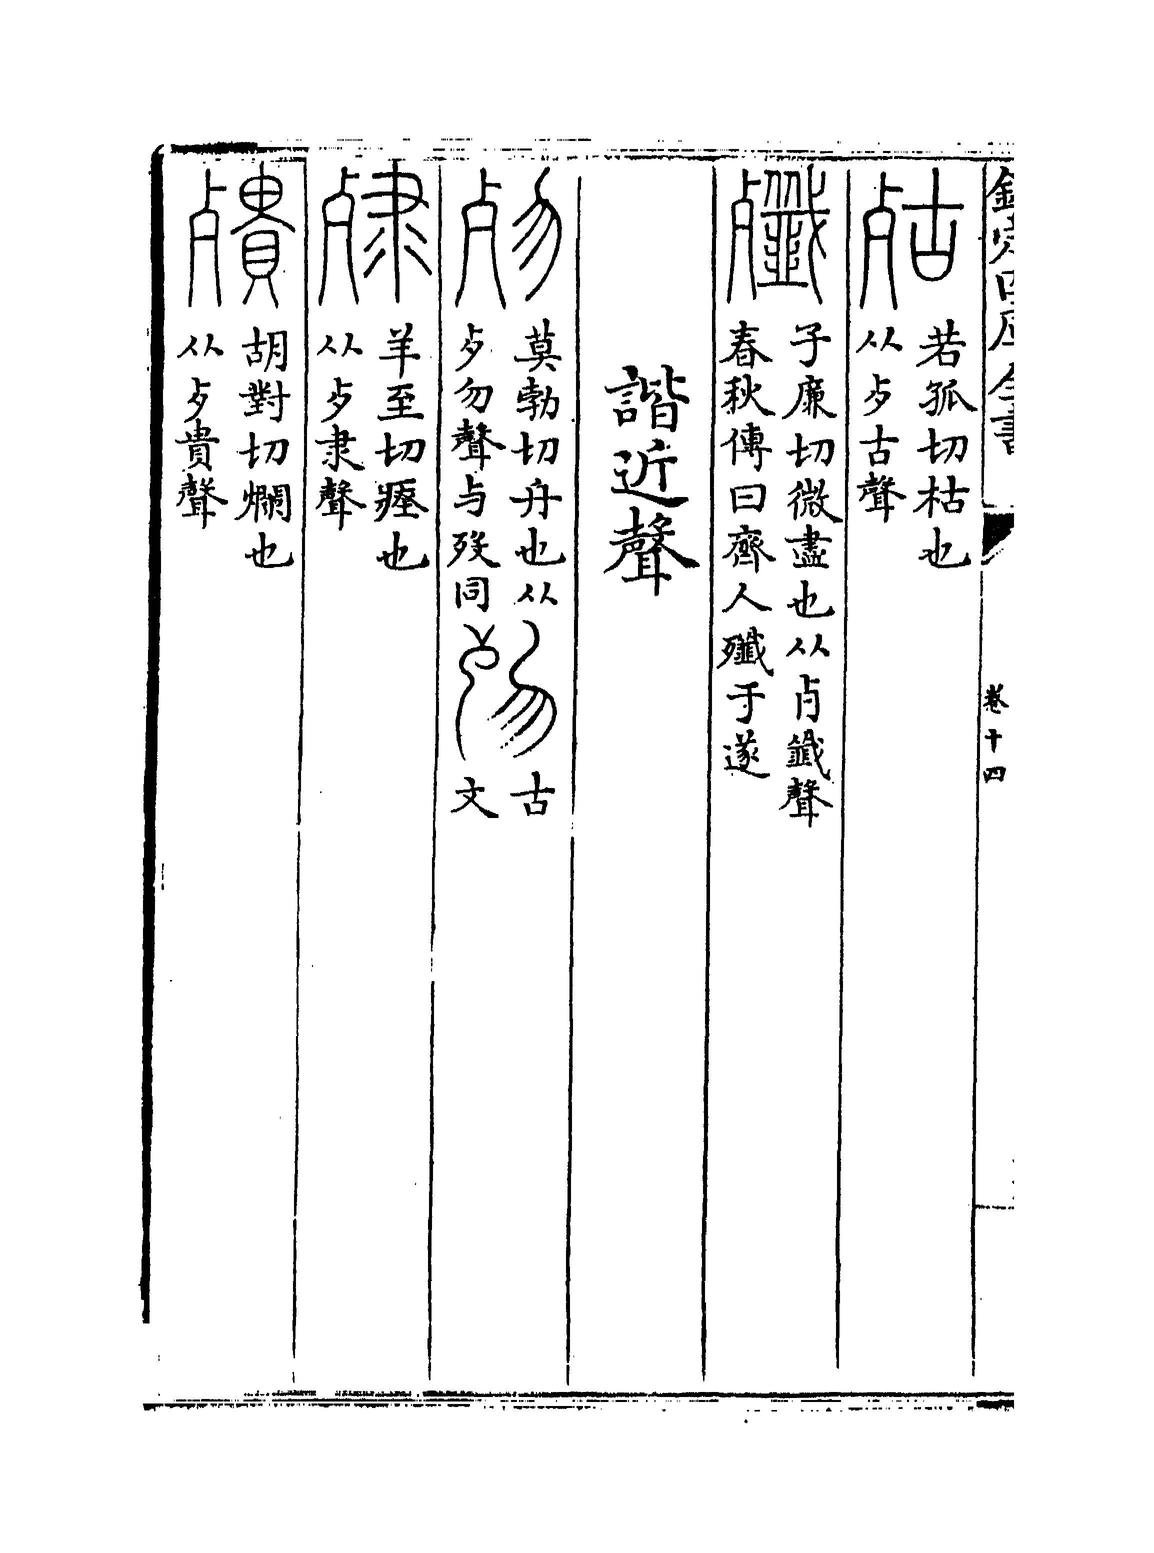 欽定四庫全書
卷十四
𣧷 若孤切枯也
从歺古聲
殲 子廉切微盡也从歺韱聲
春秋傳曰齊人殲于遂
諧近聲
歾 莫勃切冄也从
歺勿聲与歿同 古
文
羊至切瘞也
从歺隶聲
殨 胡對切爛也
从歺貴聲